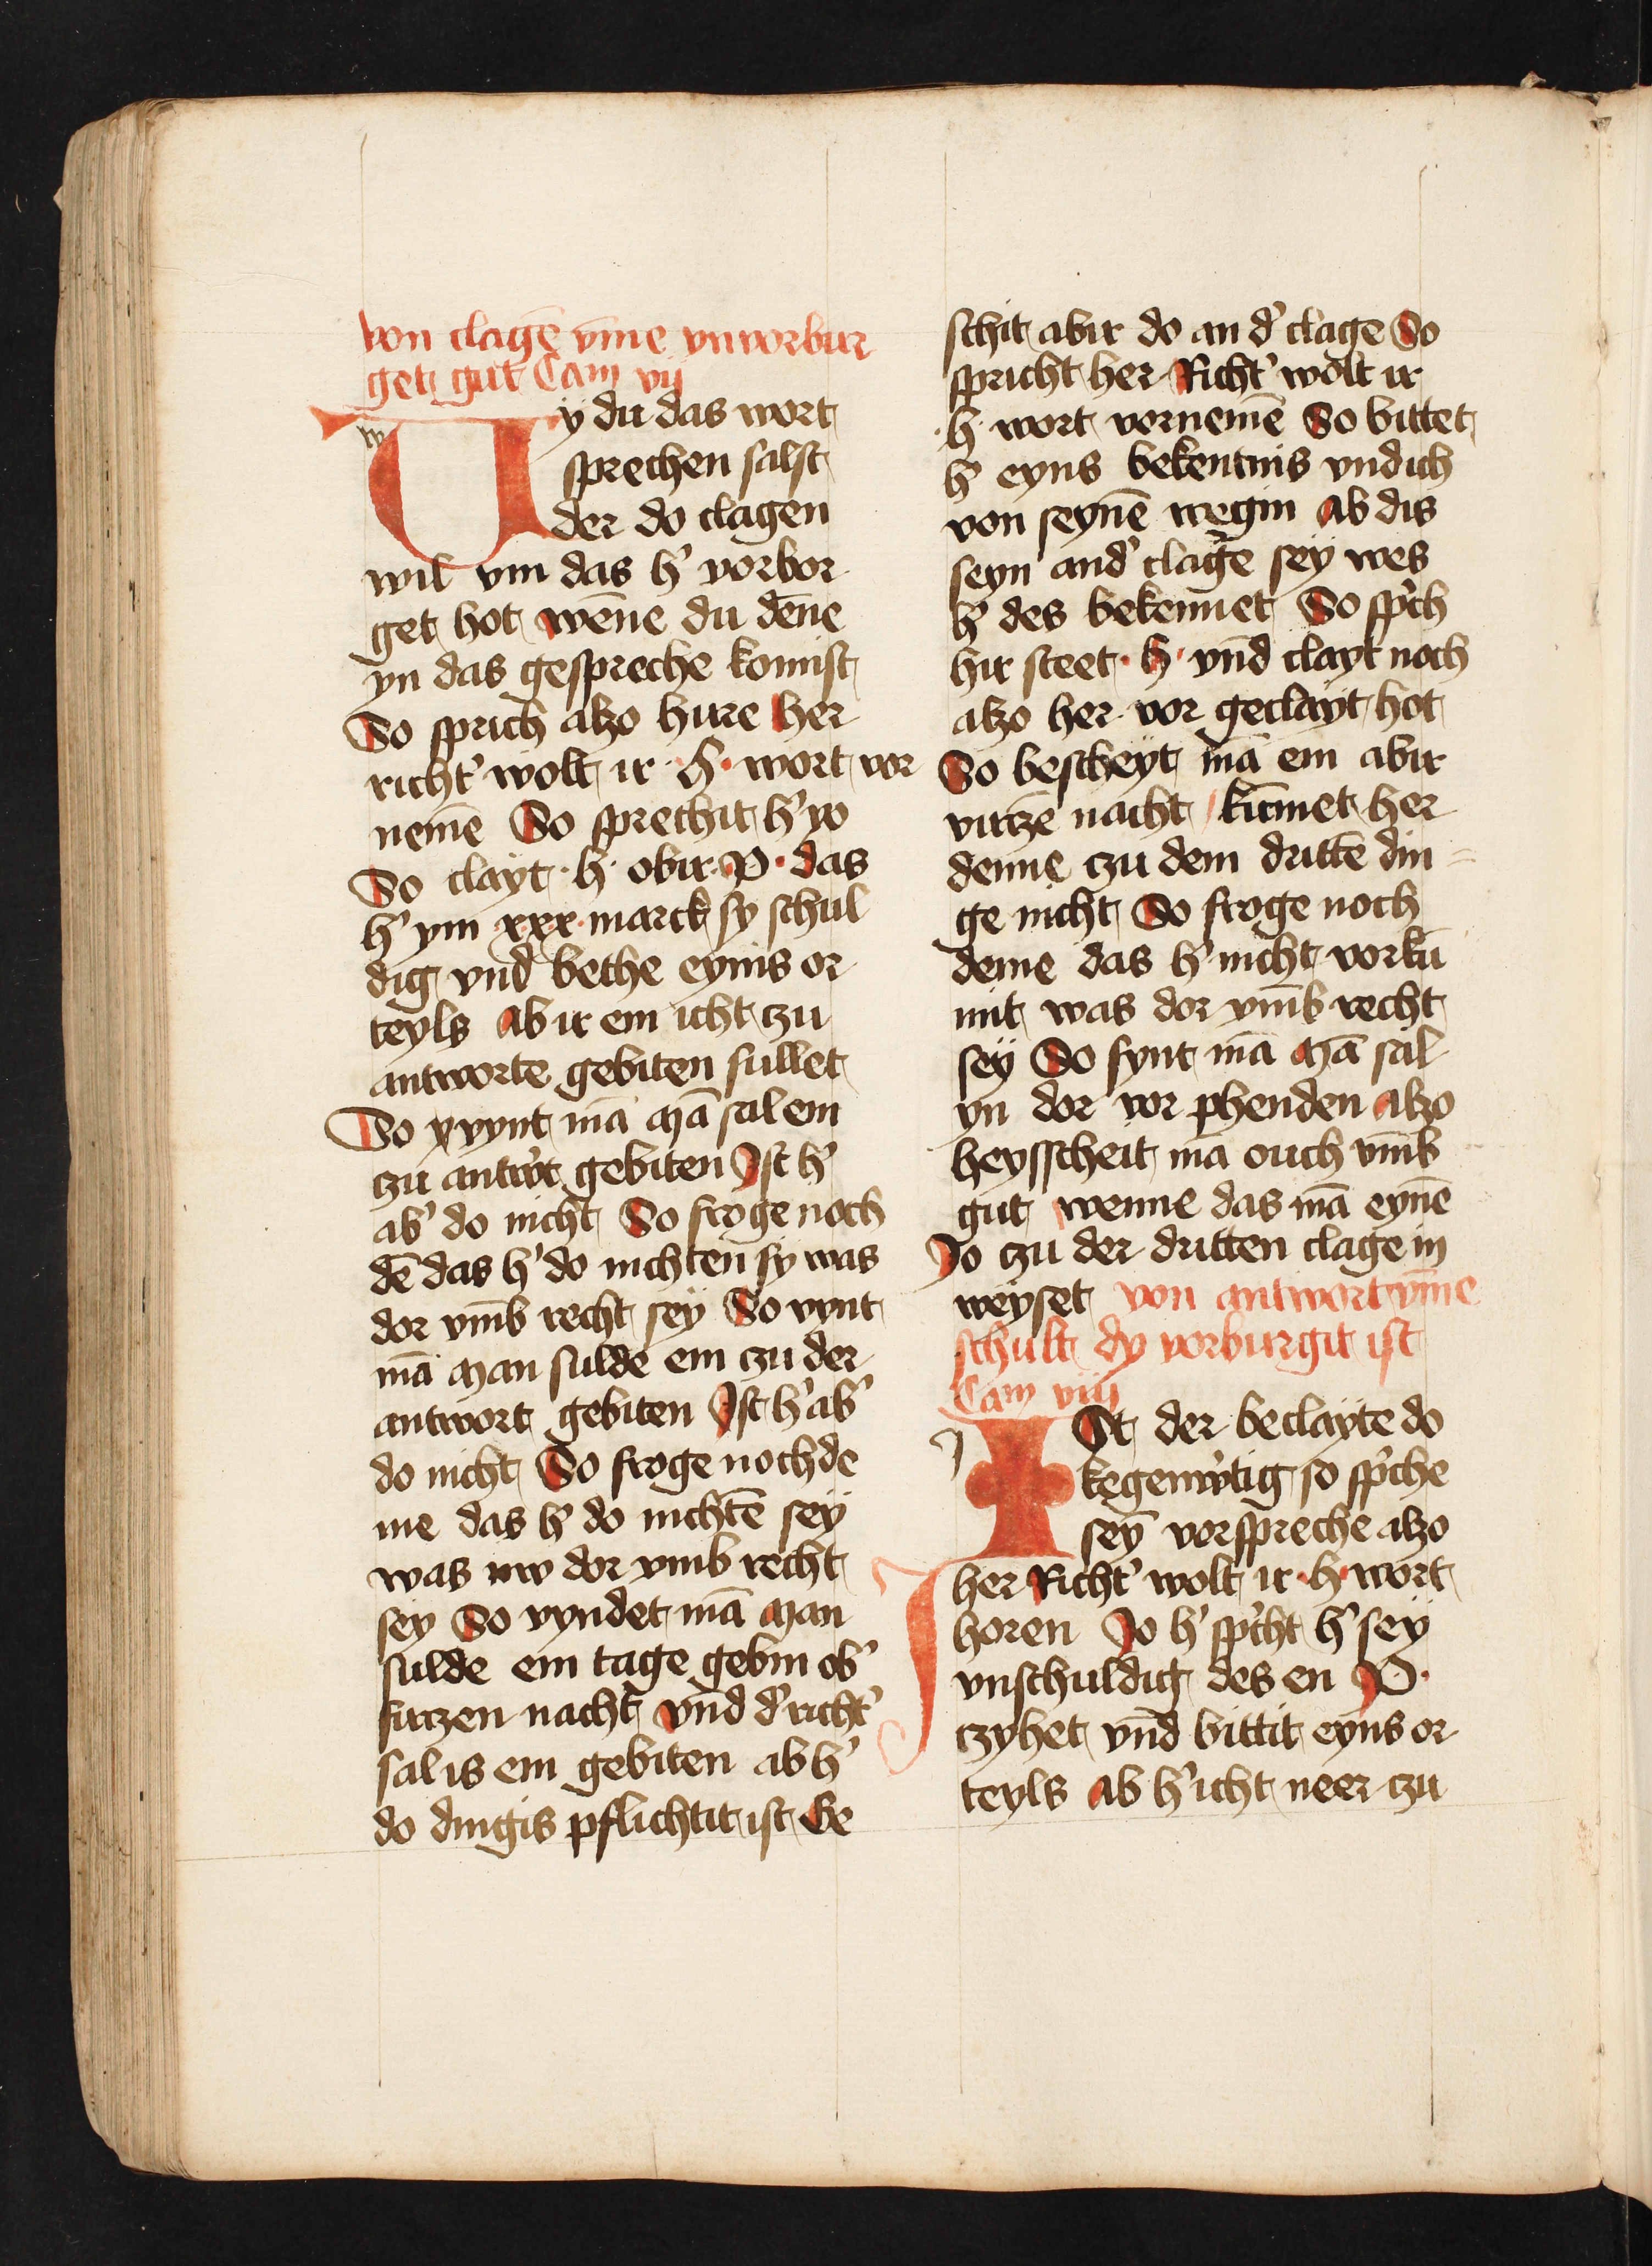 von clagē vm̄e vnvorbur
get gut Cam vij
Wy du das wort
sprechen salst
der do clagen
wil vm das h' vorbor
get hot wēne du dēne
yn das gespreche komist
So sprich alzo hure her
richt' wolt ir ·h· wort vor
nemē So sprechit h' yo
So clayt ·h· obir ·P· das
h' ym xxx marck sy schul
dig vnd bethe eynis or
teyls Ab ir em icht czu
antworte gebiten sullet
So vynt mā Mā sal em
czu antw't gebiten Ist h'
ab' do nicht So froge noch
dē das h' do nichten sy was
dor vm̄b recht sey So vynt
mā Man sulde em czu der
antwort gebiten Ist h' ab'
do nicht So froge noch de
me das h' do nichtē sey
was nw dor vmb recht
sey So vyndet mā Man
sulde em tage gebin ob'
firczen nacht vnd d' richt'
sal is em gebiten ab h'
do dingis pflichtit ist Be
schit abir do an d' clage So
spricht her Richt' wolt ir
·h· wort vornemē So bittet
h' eyns bekentnis vnd ich
von seynē wegin Ab dis
seyn and' clage sey wes
h' des bekennet So sp'ch
hir steet ·h· vnd clayt noch
alzo her vor geclayt hot
So bescheyt mā em abir
virczē nacht kūmet her
denne czu dem drittē din
ge nicht So froge noch
deme das h' nicht vorkū
mit was dor vm̄b recht
sey So fynt mā Mā sal
yn dor vor phenden Alzo
heysscheit mā ouch vm̄b
gut wenne das mā eynē
Jo czu der dritten clage in
weyset von antwort vm̄e
schult dy vorburgit ist
Cam viij
I St der beclayte do
kegenw'tig so sp'che
seȳ vorspreche alzo
her Richt' wolt ir ·h· wort
horen Jo h' sp'cht h' sey
vnschuldig des en ·P·
czyhet vnd bittit eyns or
teyls Ab h' icht neer czu